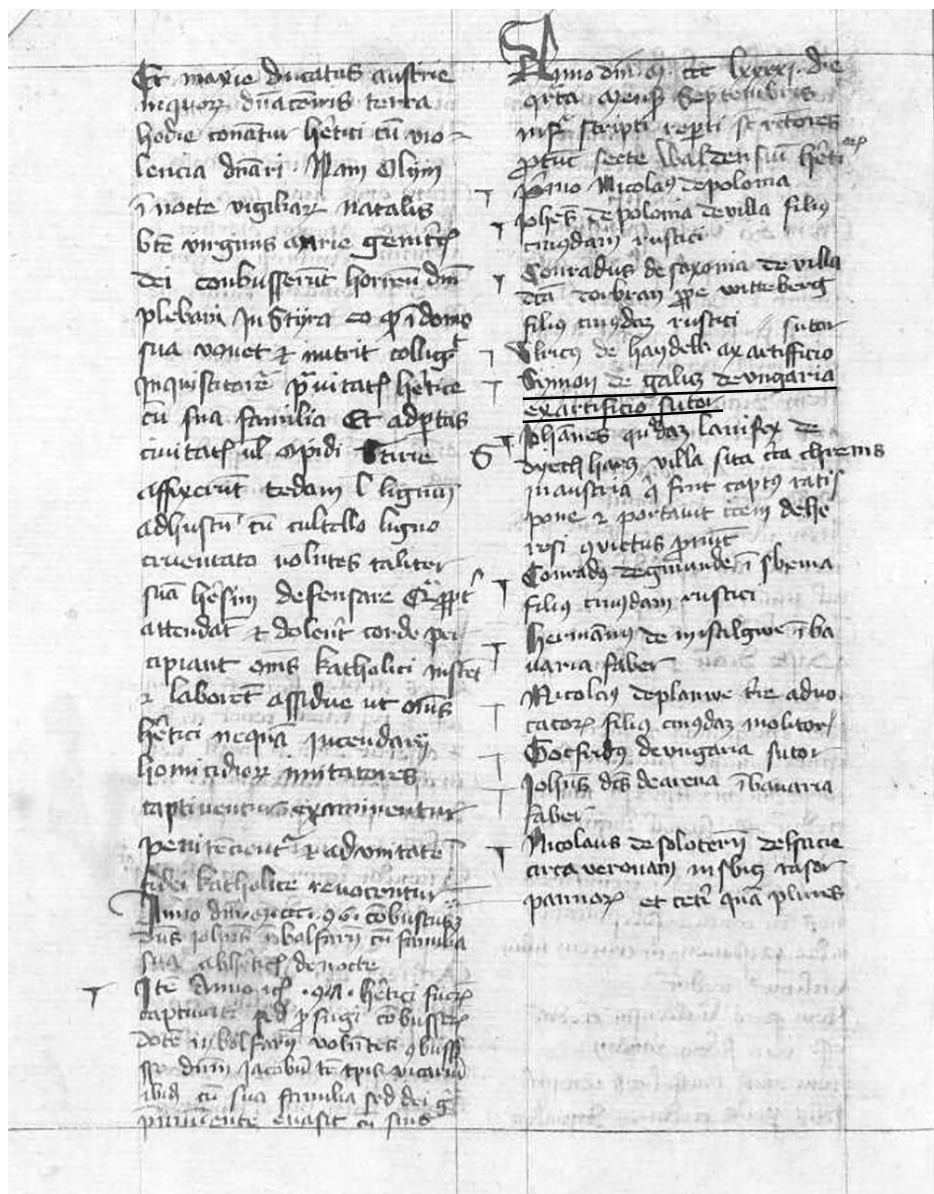 Et maxie ducatus austrie
inquor dnacionis terra
hodie conantur hetici cu vio
lencia dnari . Nam Olym
i nocte vigiliar natalis
bte virginis marie genitcis
dei conbusserunt horreu dni
plebani In Styra eo q i domo
sua vonet et nutrit collig
Inquisitore pravitat hetice
cu sua familia Et ad portas
civitat ul opidi Stirie
affixerunt tedam l lignum
adhustu cu cultello ligno
cruentato volutes taliter
sua hesim defensare Qppt
attendat et dolent corde per
cipiant oms katholici instet
et laboret assidue ut oms
hetici nequa Incendarij
homicidior imitatores
captiventur examinentur
penitecient et ad unitate
fidei katholice revocentur
Anno dni mccc . 96 . cobustus
dns Iohns i bolfarn cu familia
sua ab hetic de nocte
Ite Anno 97 . hetici fuer
captivati sed pfugi cobusser
dote in bolfarn volutes gbuss
dnm Jacobu tc tpis vicariu
ibid cu sua familia sed dei g
pveniente evasit cu suis
Anno dni M ccc lxxxxi . die
qrta mens Septembris
infra scripti repti st rectores
ptuc secte Waldensiu heticor
Pmo Nicolaus de polonia
Johes de polonia de villa filius
cuiusdam rustici
Conradus de saxonia de villa
dcta dorbran ppe witteberg
filius cuiusdaz rustici
Ulricus de haydek ax artifficio sutor
Symon de galicz de ungaria
ex artificio sutor
Johannes quidaz lanifex de
dyech harcz villa sita cca chrems
in austria q fuit captus ratis
pone et portavit crcem de he
resi quietus pnuc
Conradus de gmunde i svevia
filius cuiusdam rustici
Hermannus de mistalgwe i ba
varia faber
Nicolaus de planwe tre advo
cator filius cuiusdaz molitor
Gotfridus de ungaria sutor
Johns dcs de arena i bavaria
faber
Nicolaus de solotern de suicie
circa veronam rasor
pannor et ceti qua plures